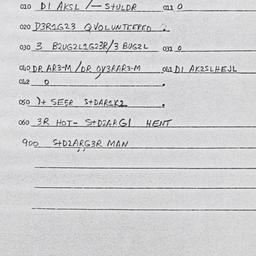 010 DI AKSL /— S+ULDR 011 0
020 D3R1G23 QVOLUNTEERED ?
030 3 B2UG2L1G23R/3 BUG2L 031 0
040 DR AR3-M/DR 0V3RAR3-M 041 DI AK2SLHEJL
042 0 .
050 )+ SE5R S+DAR1K2 .
060 3R HOT- S+D2ARG1 HENT
900 S+D2ARG3R MAN